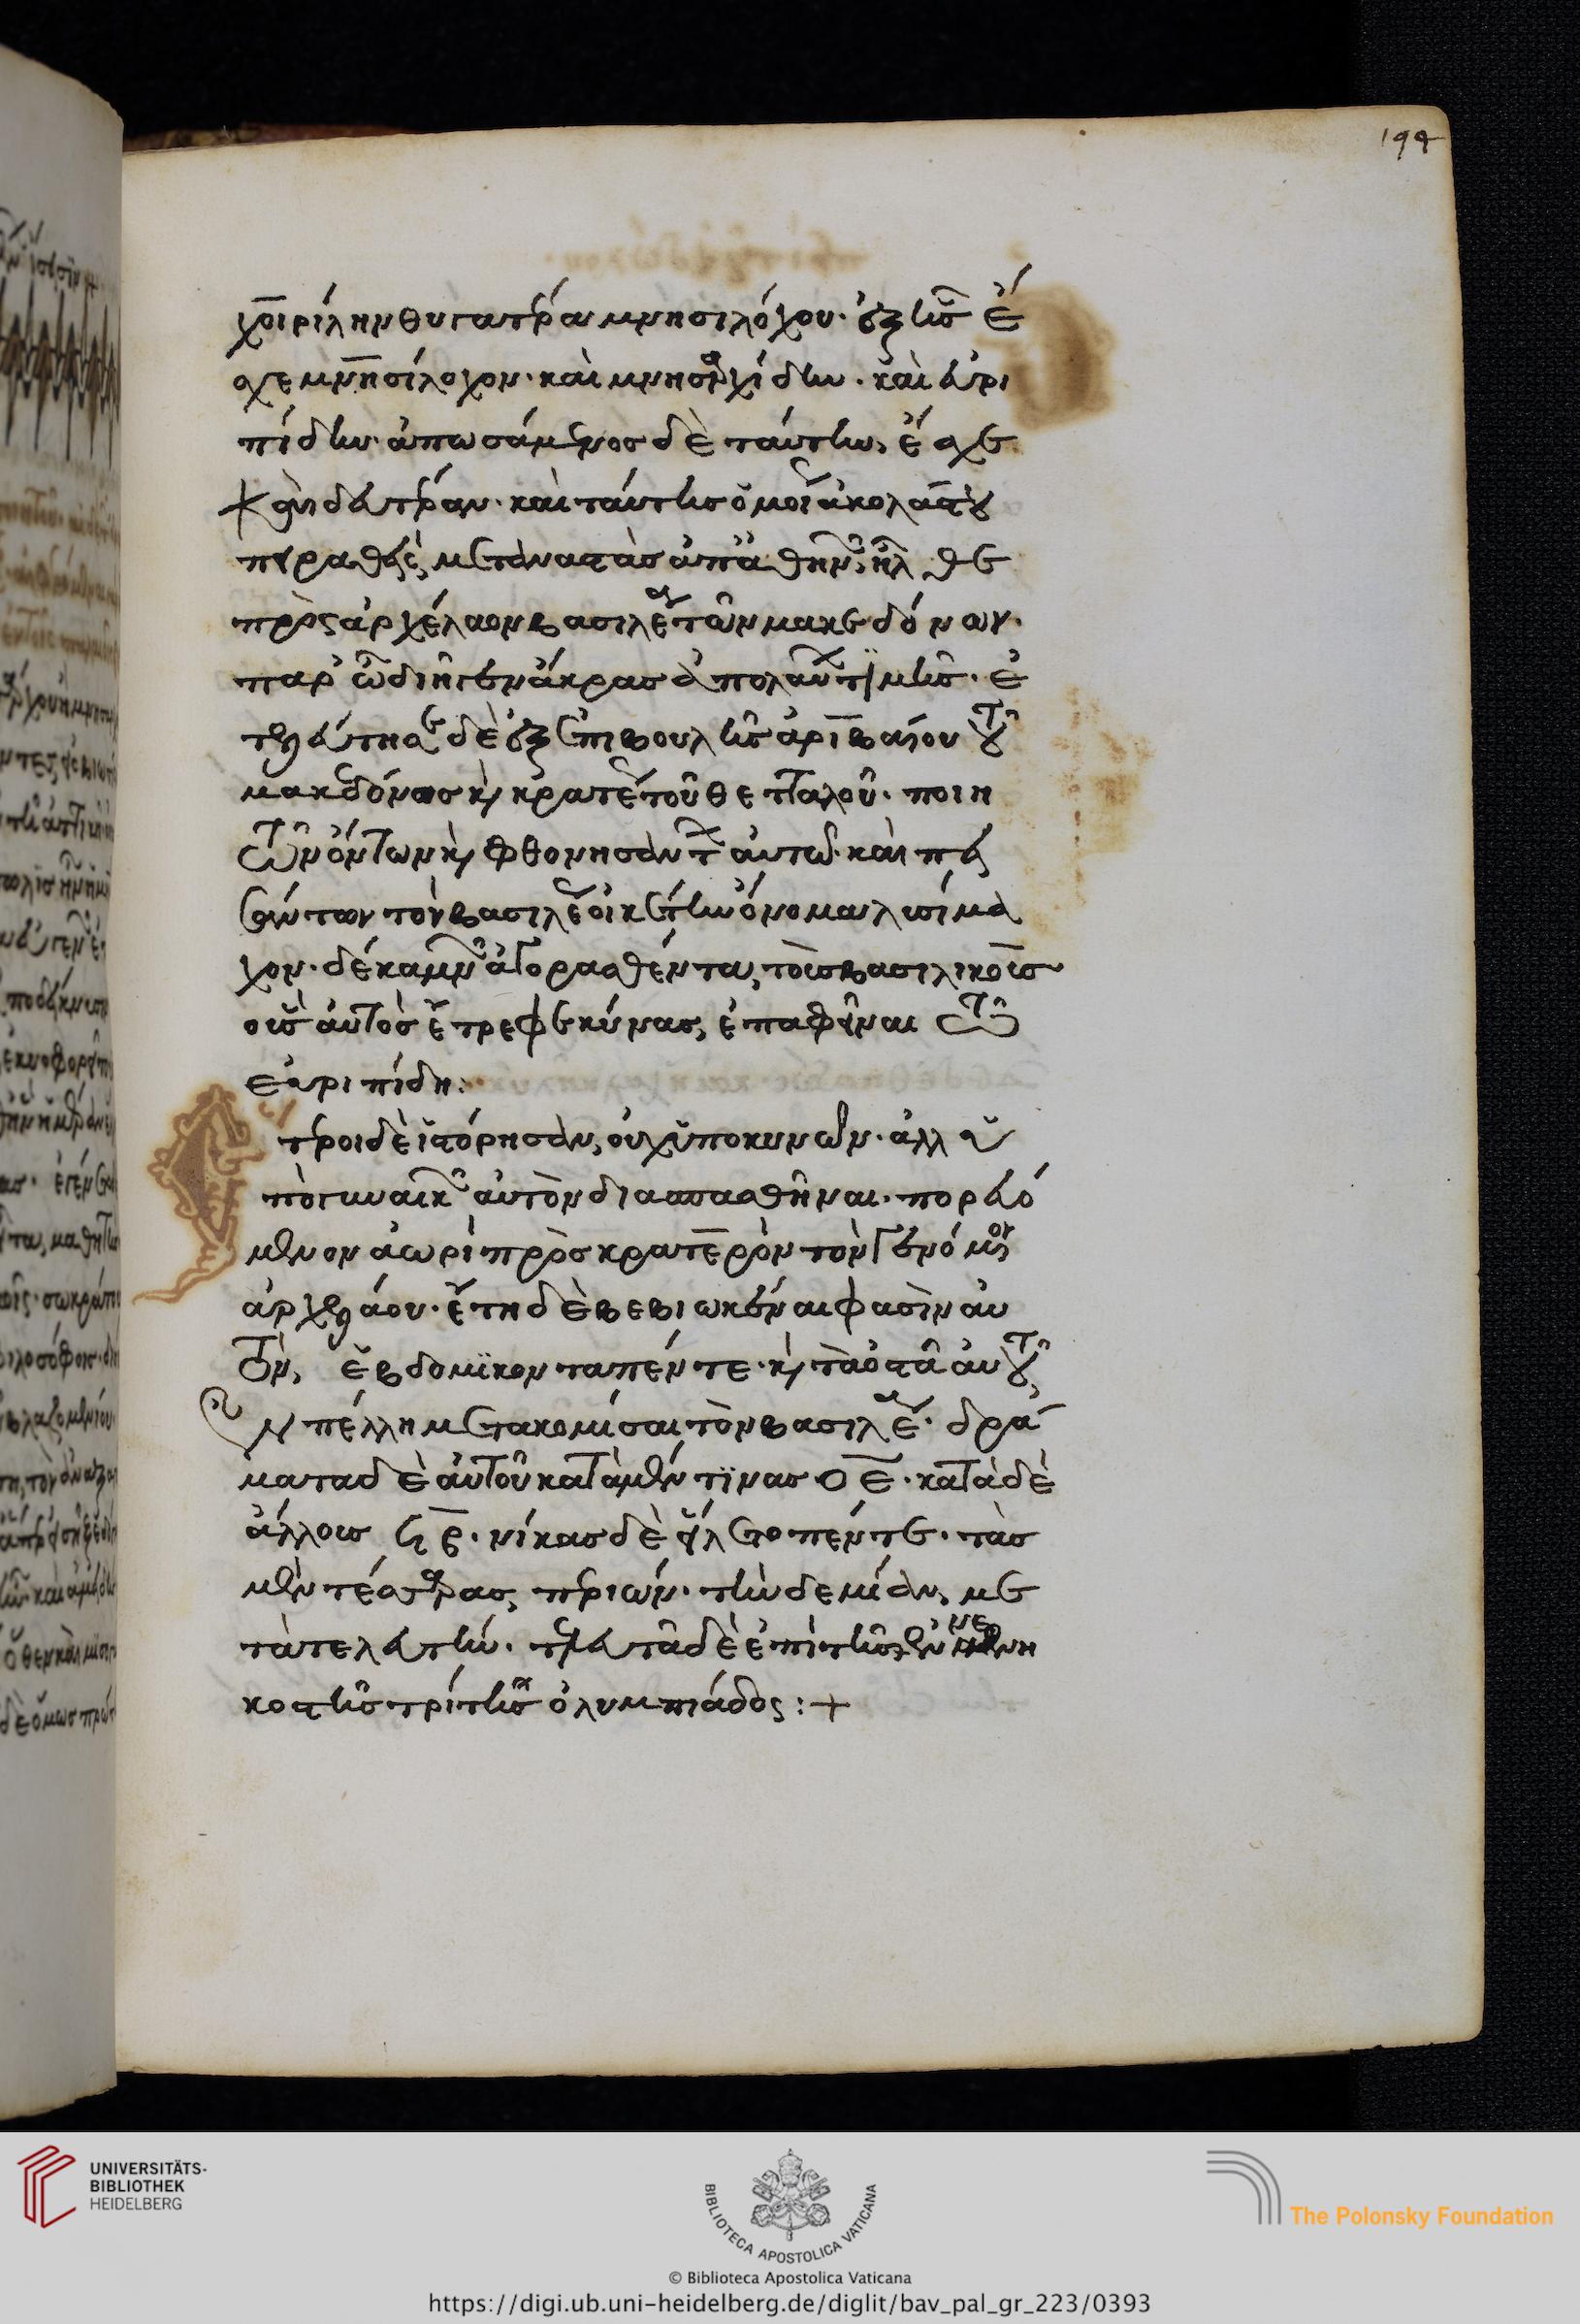 194
χοιρίλην θυγατέρα μνησιλόχου. ἐξ ἧς ἔ
σχε μνησίλοχον. καὶ μνησαρχίδην. καὶ εὐρι
πίδην. ἀπωσάμενος δὲ ταύτην, ἔσχε
καὶ δευτέραν. καὶ ταύτης ὁμοίως ἀκολάστου
πειραθείς, μεταναστὰς ἀπὸ ἀθηνῶν, ἦλθε
πρὸς ἀρχέλαον βασιλέα τῶν μακεδόνων.
παρ' ὧ διῆγεν ἄκρας ἀπολαύων τιμῆς. ἐ
τελεύτησε δὲ ἐξ ἐπιβουλῆς ἀριβαίου τοῦ
μακεδόνος καὶ κρατεύα τοῦ θετταλοῦ. ποιη
τῶν ὄντων καὶ φθονησάντων αὐτῶ. καὶ πει
σάντων τὸν βασιλέως οἰκέτην ὄνομα λυσίμα
χον. δέκα μνῶν ἀγορασθέντα, τοῖς βασιλικοῖς
οὓς αὐτὸς ἔτρεφε κύνας, ἐπαφεῖναι τῶ
εὐριπίδη:
ἕτεροι δὲ ἱστόρησαν, οὐχ ὑπὸ κυνῶν. ἀλλ' ὑ
πὸ γυναικῶν αὐτὸν διασπασθῆναι. πορευό
μενον ἀωρὶ πρὸς κρατερὸν τὸν ἐρώμενον
ἀρχελάου. ἔτη δὲ βεβιωκέναι φασὶν αὐ
τὸν, ἑβδομήκοντα πέντε. καὶ τὰ ὀστᾶ αὐτοῦ,
ἐν πέλλη μετακομίσαι τὸν βασιλέα. δρά
ματα δὲ αὐτοῦ κατὰ μέν τινας οε. κατὰ δὲ
ἄλλους ϟβ. νίκας δὲ εἵλετο πέντε. τὰς
μὲν τέσσαρας, περιών. τὴν δὲ μίαν, με
τὰ τελευτήν. τελευτᾶ δὲ ἐπὶ τῆς ἐννενη
κοστῆς τρίτης ὀλυμπιάδος:+
UNIVERSITÄTS-
BIBLIOTHEK
HEIDELBERG
BIBLIOTECA APOSTOLICA VATICANA
The Polonsky Foundation
© Biblioteca Apostolica Vaticana
https://digi.ub.uni-heidelberg.de/diglit/bav_pal_gr_223/0393